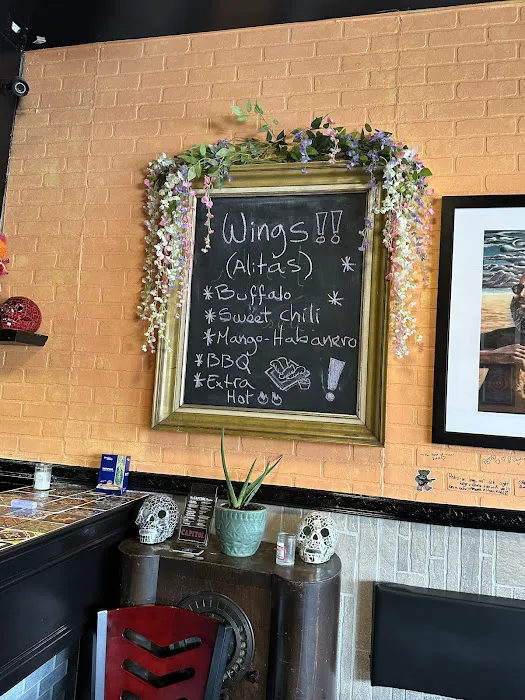 Wings!!
(Alitas)
* Buffalo *
* Sweet Chili *
* Mango-Habanero
* BBQ
* Extra
Hot
!
CAPITOL